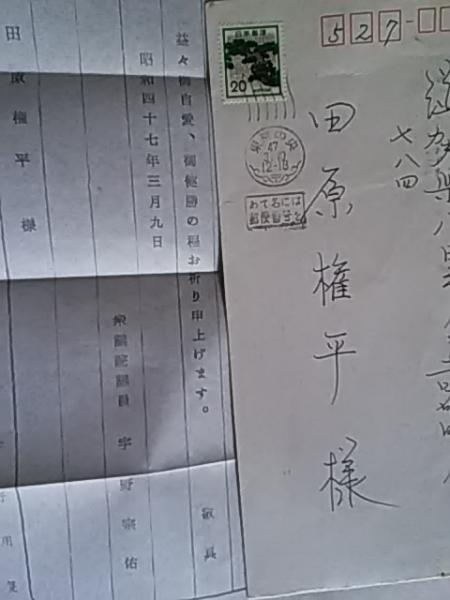 益々御自愛、御健勝の程お祈り申上げます。
敬具
昭和四十七年三月九日
衆議院議員 宇野宗佑
田原権平様
用箋
日本郵便
20
527-
七八四
田原権平様
47
12-18
あて名には
郵便番号を